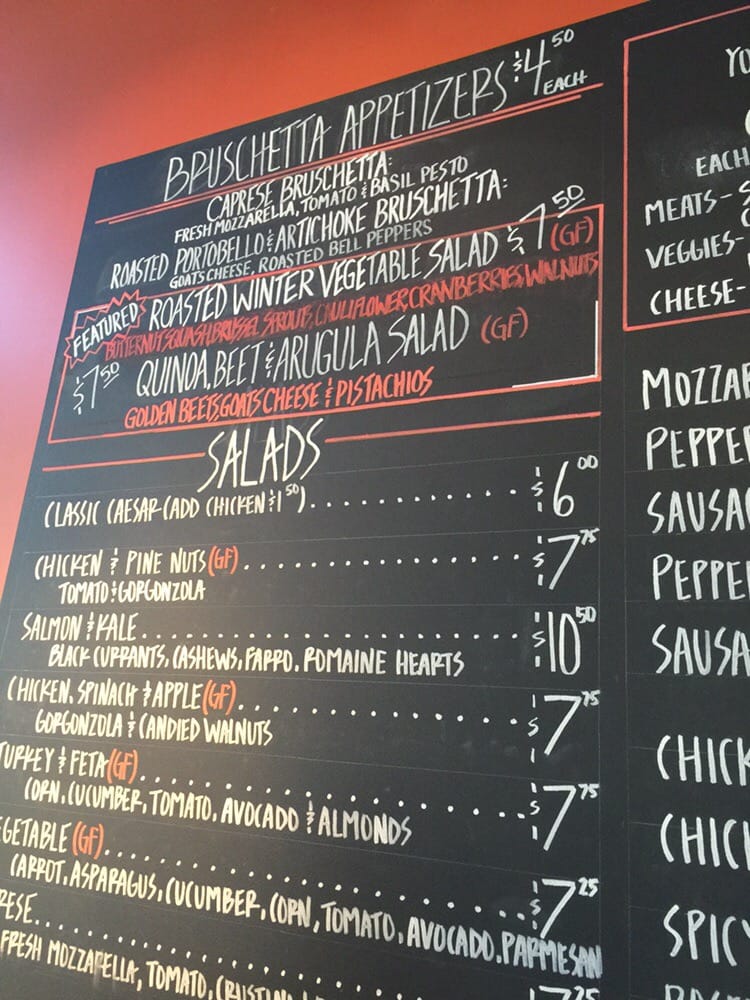 BRUSCHETTA APPETIZERS $4.50 EACH
CAPRESE BRUSCHETTA:
FRESH MOZZARELLA, TOMATO & BASIL PESTO
ROASTED PORTOBELLO & ARTICHOKE BRUSCHETTA:
GOATS CHEESE, ROASTED BELL PEPPERS
FEATURED ROASTED WINTER VEGETABLE SALAD $7.50 (GF)
BUTTERNUT SQUASH, BRUSSEL SPROUTS, CAULIFLOWER, CRANBERRIES, WALNUTS
$7.50 QUINOA, BEET & ARUGULA SALAD (GF)
GOLDEN BEETS, GOATS CHEESE & PISTACHIOS
SALADS
CLASSIC CAESAR (ADD CHICKEN $1.50) $6.00
CHICKEN & PINE NUTS (GF) $7.75
TOMATO & GORGONZOLA
SALMON & KALE $10.50
BLACK CURRANTS, CASHEWS, FARRO, ROMAINE HEARTS
CHICKEN, SPINACH & APPLE (GF) $7.75
GORGONZOLA & CANDIED WALNUTS
TURKEY & FETA (GF) $7.75
CORN, CUCUMBER, TOMATO, AVOCADO & ALMONDS
EGETABLE (GF) $7.25
CARROT, ASPARAGUS, CUCUMBER, CORN, TOMATO, AVOCADO, PARMESAN
RESE 7.25
FRESH MOZZARELLA, TOMATO,
YO
EACH
MEATS-
VEGGIES-
CHEESE-
MOZZAR
PEPPE
SAUSA
PEPPE
SAUSA
CHICK
CHIC
SPICY